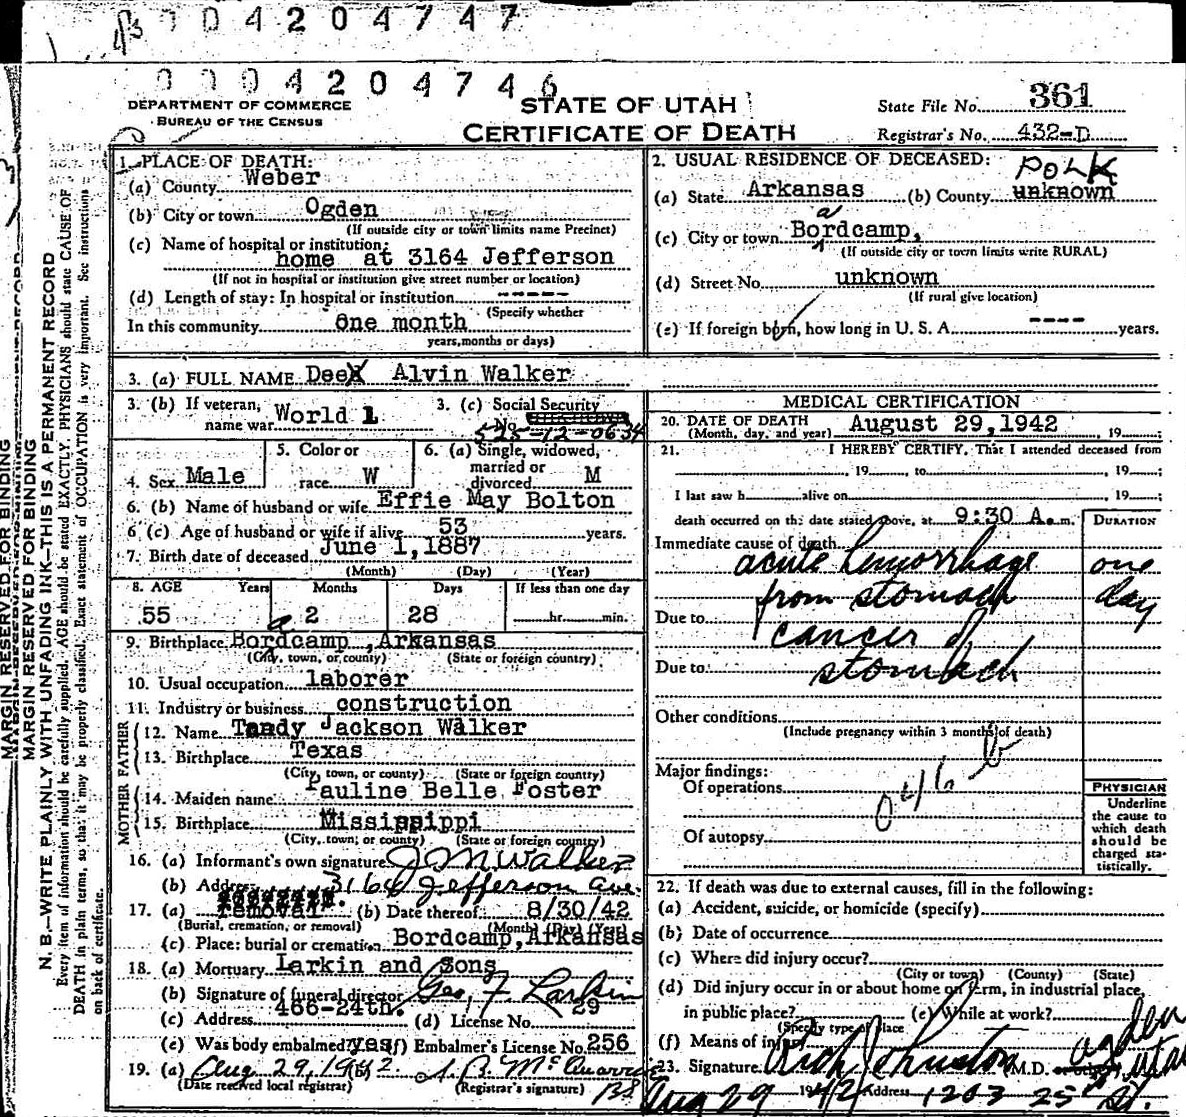 0004204747
0004204746
DEPARTMENT OF COMMERCE
BUREAU OF THE CENSUS
STATE OF UTAH
CERTIFICATE OF DEATH
State File No. 361
Registrar's No. 432-D
MARGIN RESERVED FOR BINDING
MARGIN RESERVED FOR BINDING
N. B.—WRITE PLAINLY WITH UNFADING INK—THIS IS A PERMANENT RECORD
Every item of information should be carefully supplied. AGE should be stated EXACTLY. PHYSICIANS should state CAUSE OF
DEATH in plain terms, so that it may be properly classified. Exact statement of OCCUPATION is very important. See instructions
on back of certificate.
1. PLACE OF DEATH:
(a) County Weber
(b) City or town Ogden
(If outside city or town limits name Precinct)
(c) Name of hospital or institution:
home at 3164 Jefferson
(If not in hospital or institution give street number or location)
(d) Length of stay: In hospital or institution -----
(Specify whether
In this community one month
years, months or days)
2. USUAL RESIDENCE OF DECEASED:
POLK
(a) State Arkansas (b) County unknown
a
(c) City or town Bordcamp,
(If outside city or town limits write RURAL)
(d) Street No. unknown
(If rural give location)
(e) If foreign born, how long in U. S. A. ---- years.
3. (a) FULL NAME Deex Alvin Walker
3. (b) If veteran, name war World 1
3. (c) Social Security No. 525-12-0634
4. Sex Male
5. Color or race W
6. (a) Single, widowed, married or divorced M
6. (b) Name of husband or wife Effie May Bolton
6 (c) Age of husband or wife if alive 53 years.
7. Birth date of deceased June 1, 1887
(Month) (Day) (Year)
8. AGE Years Months Days If less than one day
55 2 28 hr. min.
a
9. Birthplace Bordcamp, Arkansas
(City, town, or county) (State or foreign country)
10. Usual occupation laborer
11. Industry or business construction
FATHER
12. Name Tandy Jackson Walker
13. Birthplace Texas
(City, town, or county) (State or foreign country)
MOTHER
14. Maiden name Pauline Belle Foster
15. Birthplace Mississippi
(City, town, or county) (State or foreign country)
16. (a) Informant's own signature J M Walker
(b) Address 3164 Jefferson Ave.
17. (a) removal (b) Date thereof 8/30/42
(Burial, cremation, or removal) (Month) (Day) (Year)
(c) Place: burial or cremation Bordcamp, Arkansas
18. (a) Mortuary Larkin and Sons
(b) Signature of funeral director Geo. F. Larkin
(c) Address 466-24th. (d) License No. 29
(e) Was body embalmed? yes (f) Embalmer's License No. 256
19. (a) Aug 29, 1942 (b)
(Date received local registrar) (Registrar's signature)
MEDICAL CERTIFICATION
20. DATE OF DEATH
(Month, day, and year) August 29, 1942, 19
21. I HEREBY CERTIFY, That I attended deceased from
, 19 , to , 19 ;
I last saw h alive on , 19 ;
death occurred on the date stated above, at 9:30 A. m.
DURATION
Immediate cause of death
acute hemorrhage one
from stomach day
Due to
cancer of
Due to
stomach
Other conditions
(Include pregnancy within 3 months of death)
Major findings:
Of operations
Of autopsy
PHYSICIAN
Underline
the cause to
which death
should be
charged sta-
tistically.
22. If death was due to external causes, fill in the following:
(a) Accident, suicide, or homicide (specify)
(b) Date of occurrence
(c) Where did injury occur?
(City or town) (County) (State)
(d) Did injury occur in or about home or farm, in industrial place,
in public place? (e) While at work?
(Specify type of place
(f) Means of injury
23. Signature Rich Johnston M.D. Ogden Utah
Aug 29 1942 Address 1203 25th St.